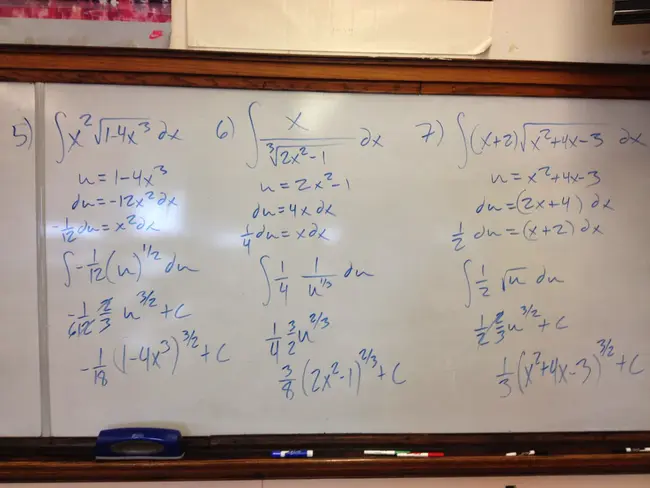 5) ∫x²√(1-4x³) dx
u = 1-4x³
du = -12x² dx
-1/12 du = x² dx
∫-1/12 (u)^1/2 du
-1/12 2/3 u^3/2 + C
-1/18 (1-4x³)^3/2 + C
6) ∫ x/∛(2x²-1) dx
u = 2x²-1
du = 4x dx
1/4 du = x dx
∫ 1/4 1/u^1/3 du
1/4 3/2 u^2/3
3/8 (2x²-1)^2/3 + C
7) ∫(x+2)√(x²+4x-3) dx
u = x²+4x-3
du = (2x+4) dx
1/2 du = (x+2) dx
∫ 1/2 √u du
1/2 2/3 u^3/2 + C
1/3 (x²+4x-3)^3/2 + C